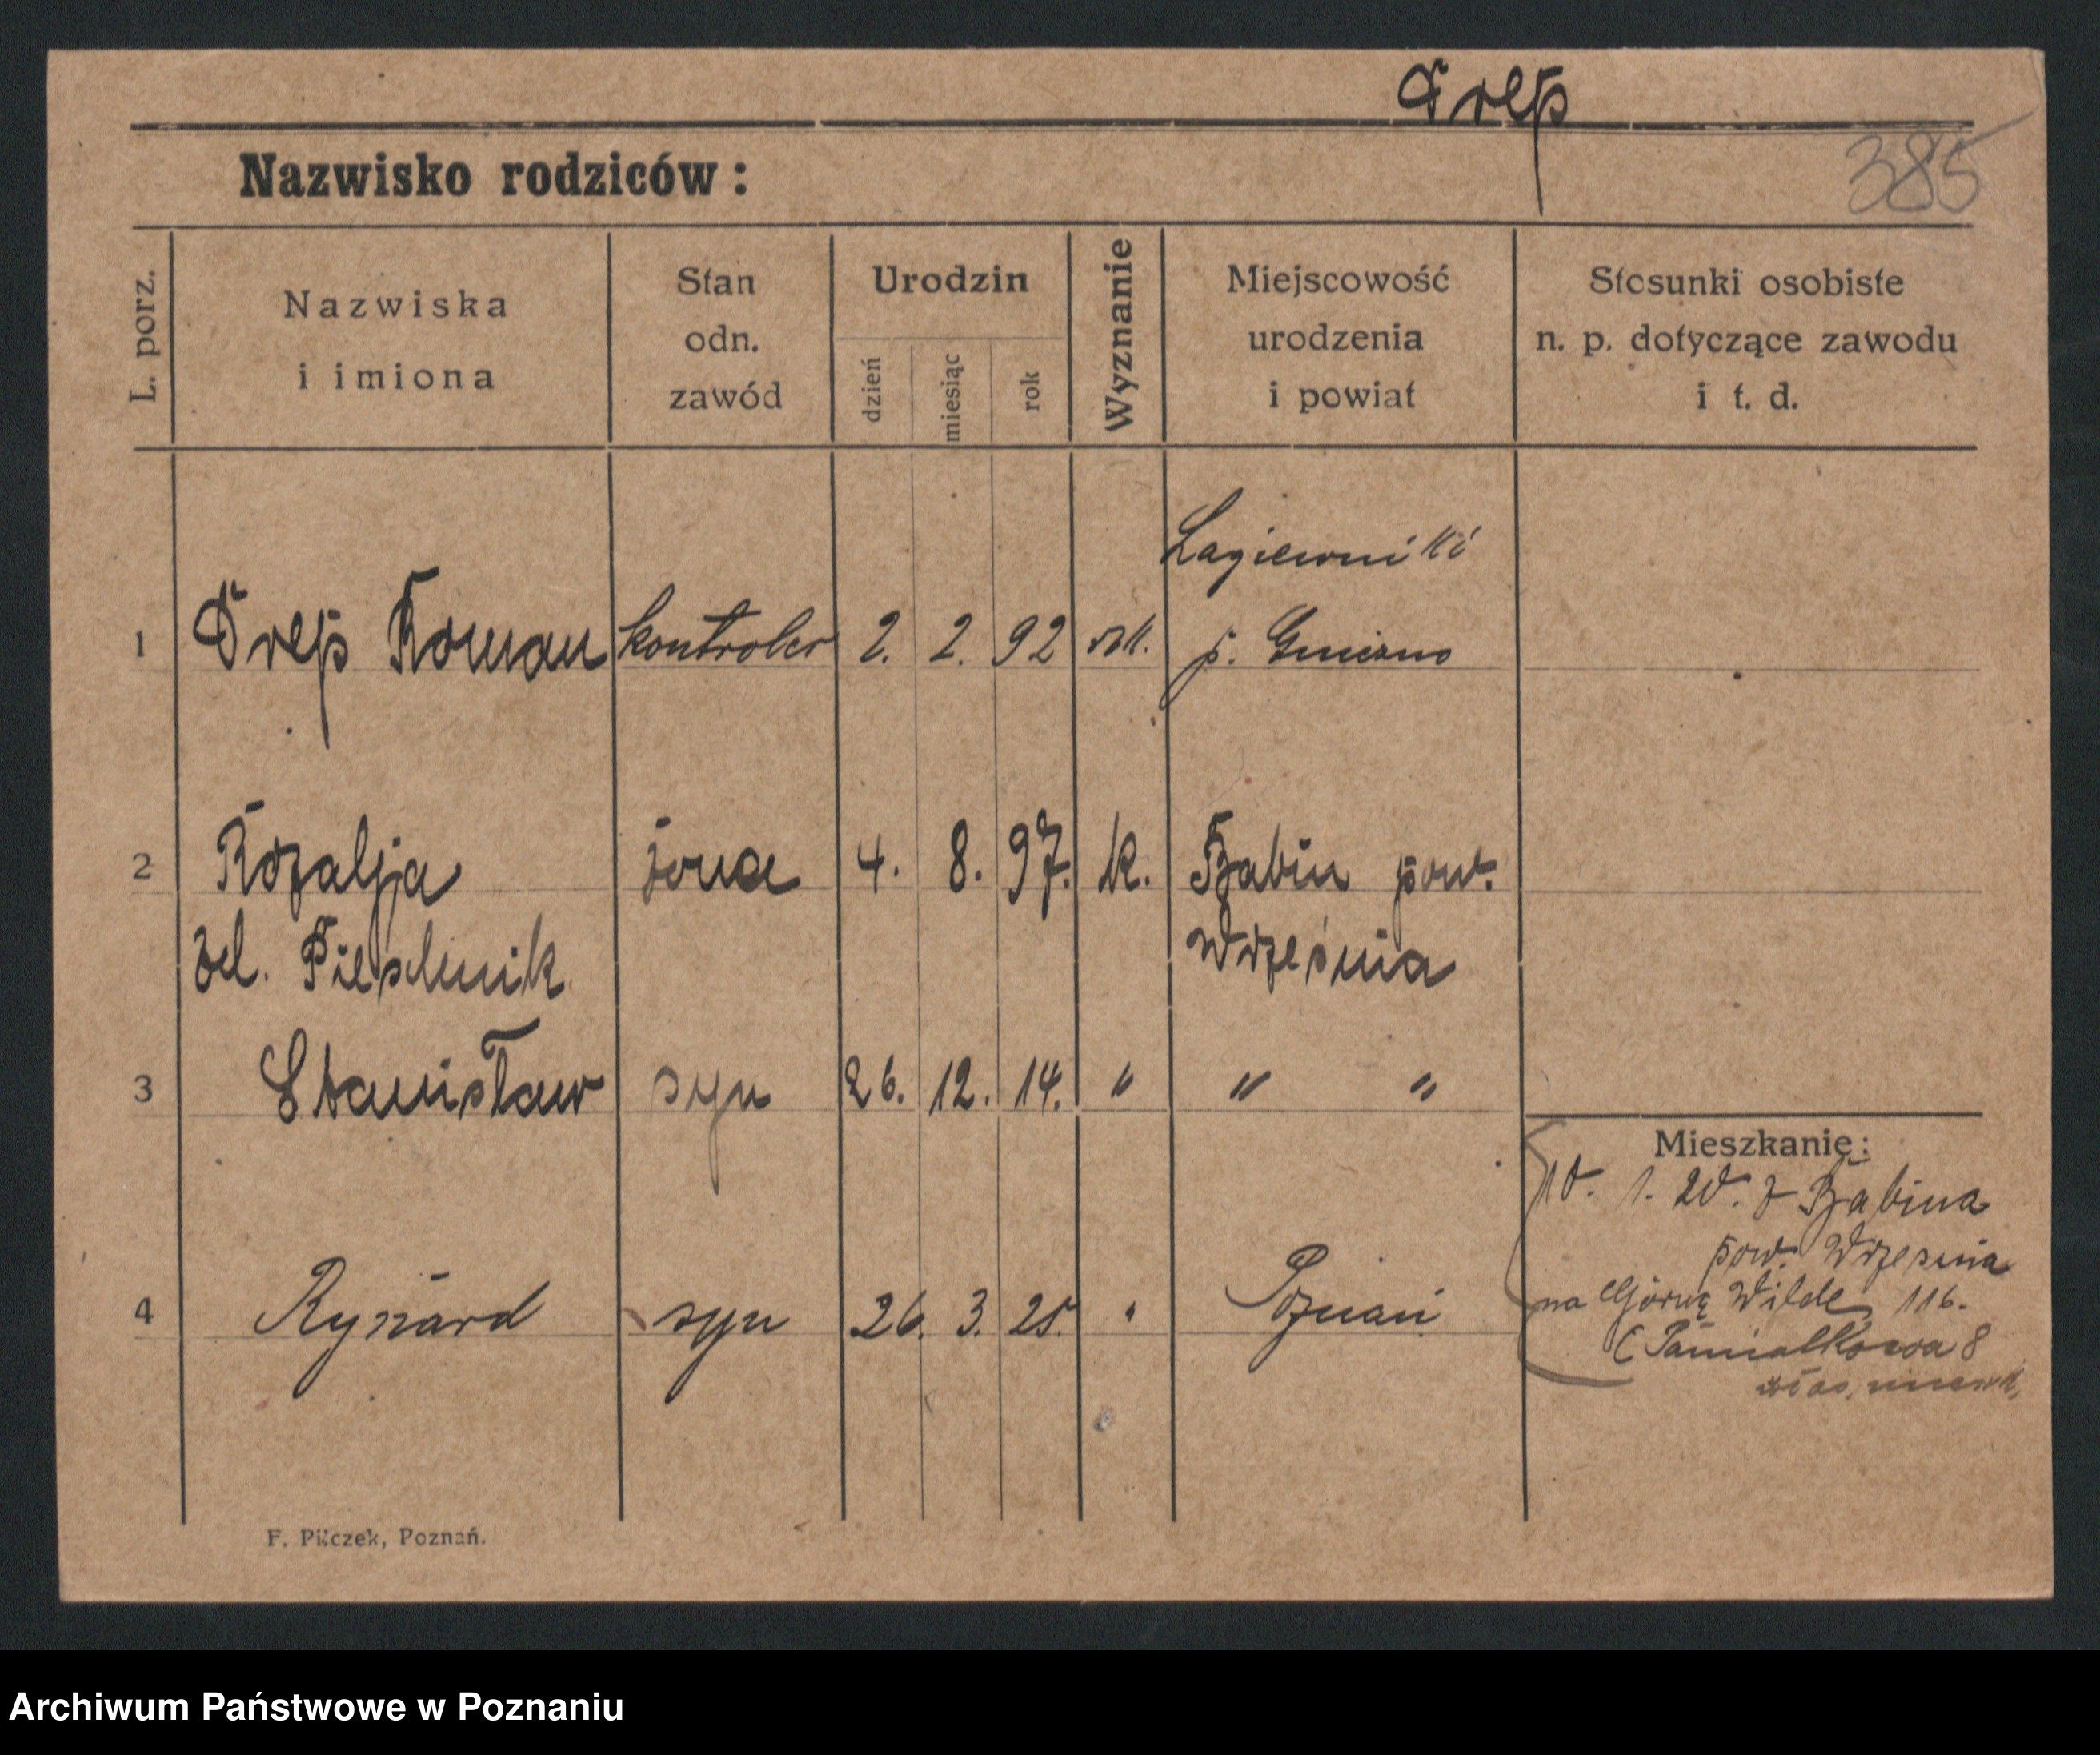 Trep
385
Nazwisko rodziców:
L. porz.
Nazwiska
i imiona
Stan
odn.
zawód
Urodzin
dzień
miesiąc
rok
Wyznanie
Miejscowość
urodzenia
i powiat
Stosunki osobiste
n. p. dotyczące zawodu
i t. d.
Łagiewniki
1 Trep Roman kontroler 2. 2. 92 rk. p. Gniezno
2 Rozalja żona 4. 8. 97. k. Babin pow.
Września
3 Stanisław syn 26. 12. 14. " " "
Mieszkanie:
1. 20. z Babina
pow. Września
4 Ryszard syn 26. 3. 25. " Poznań
na Górną Wildę 116.
F. Pilczek, Poznań.
Archiwum Państwowe w Poznaniu